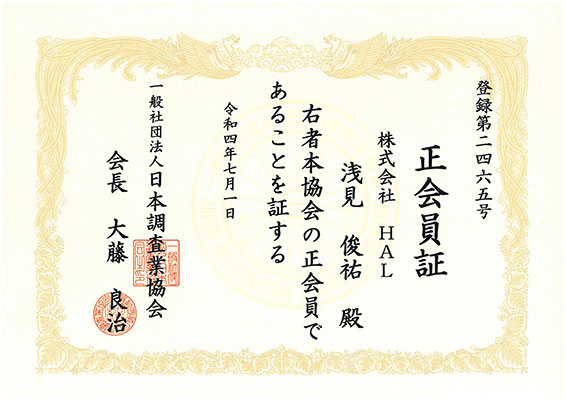 登録第二四六五号
正会員証
株式会社 HAL
浅見 俊祐 殿
右者本協会の正会員で
あることを証する
令和四年七月一日
一般社団法人日本調査業協会
会長 大藤 良治